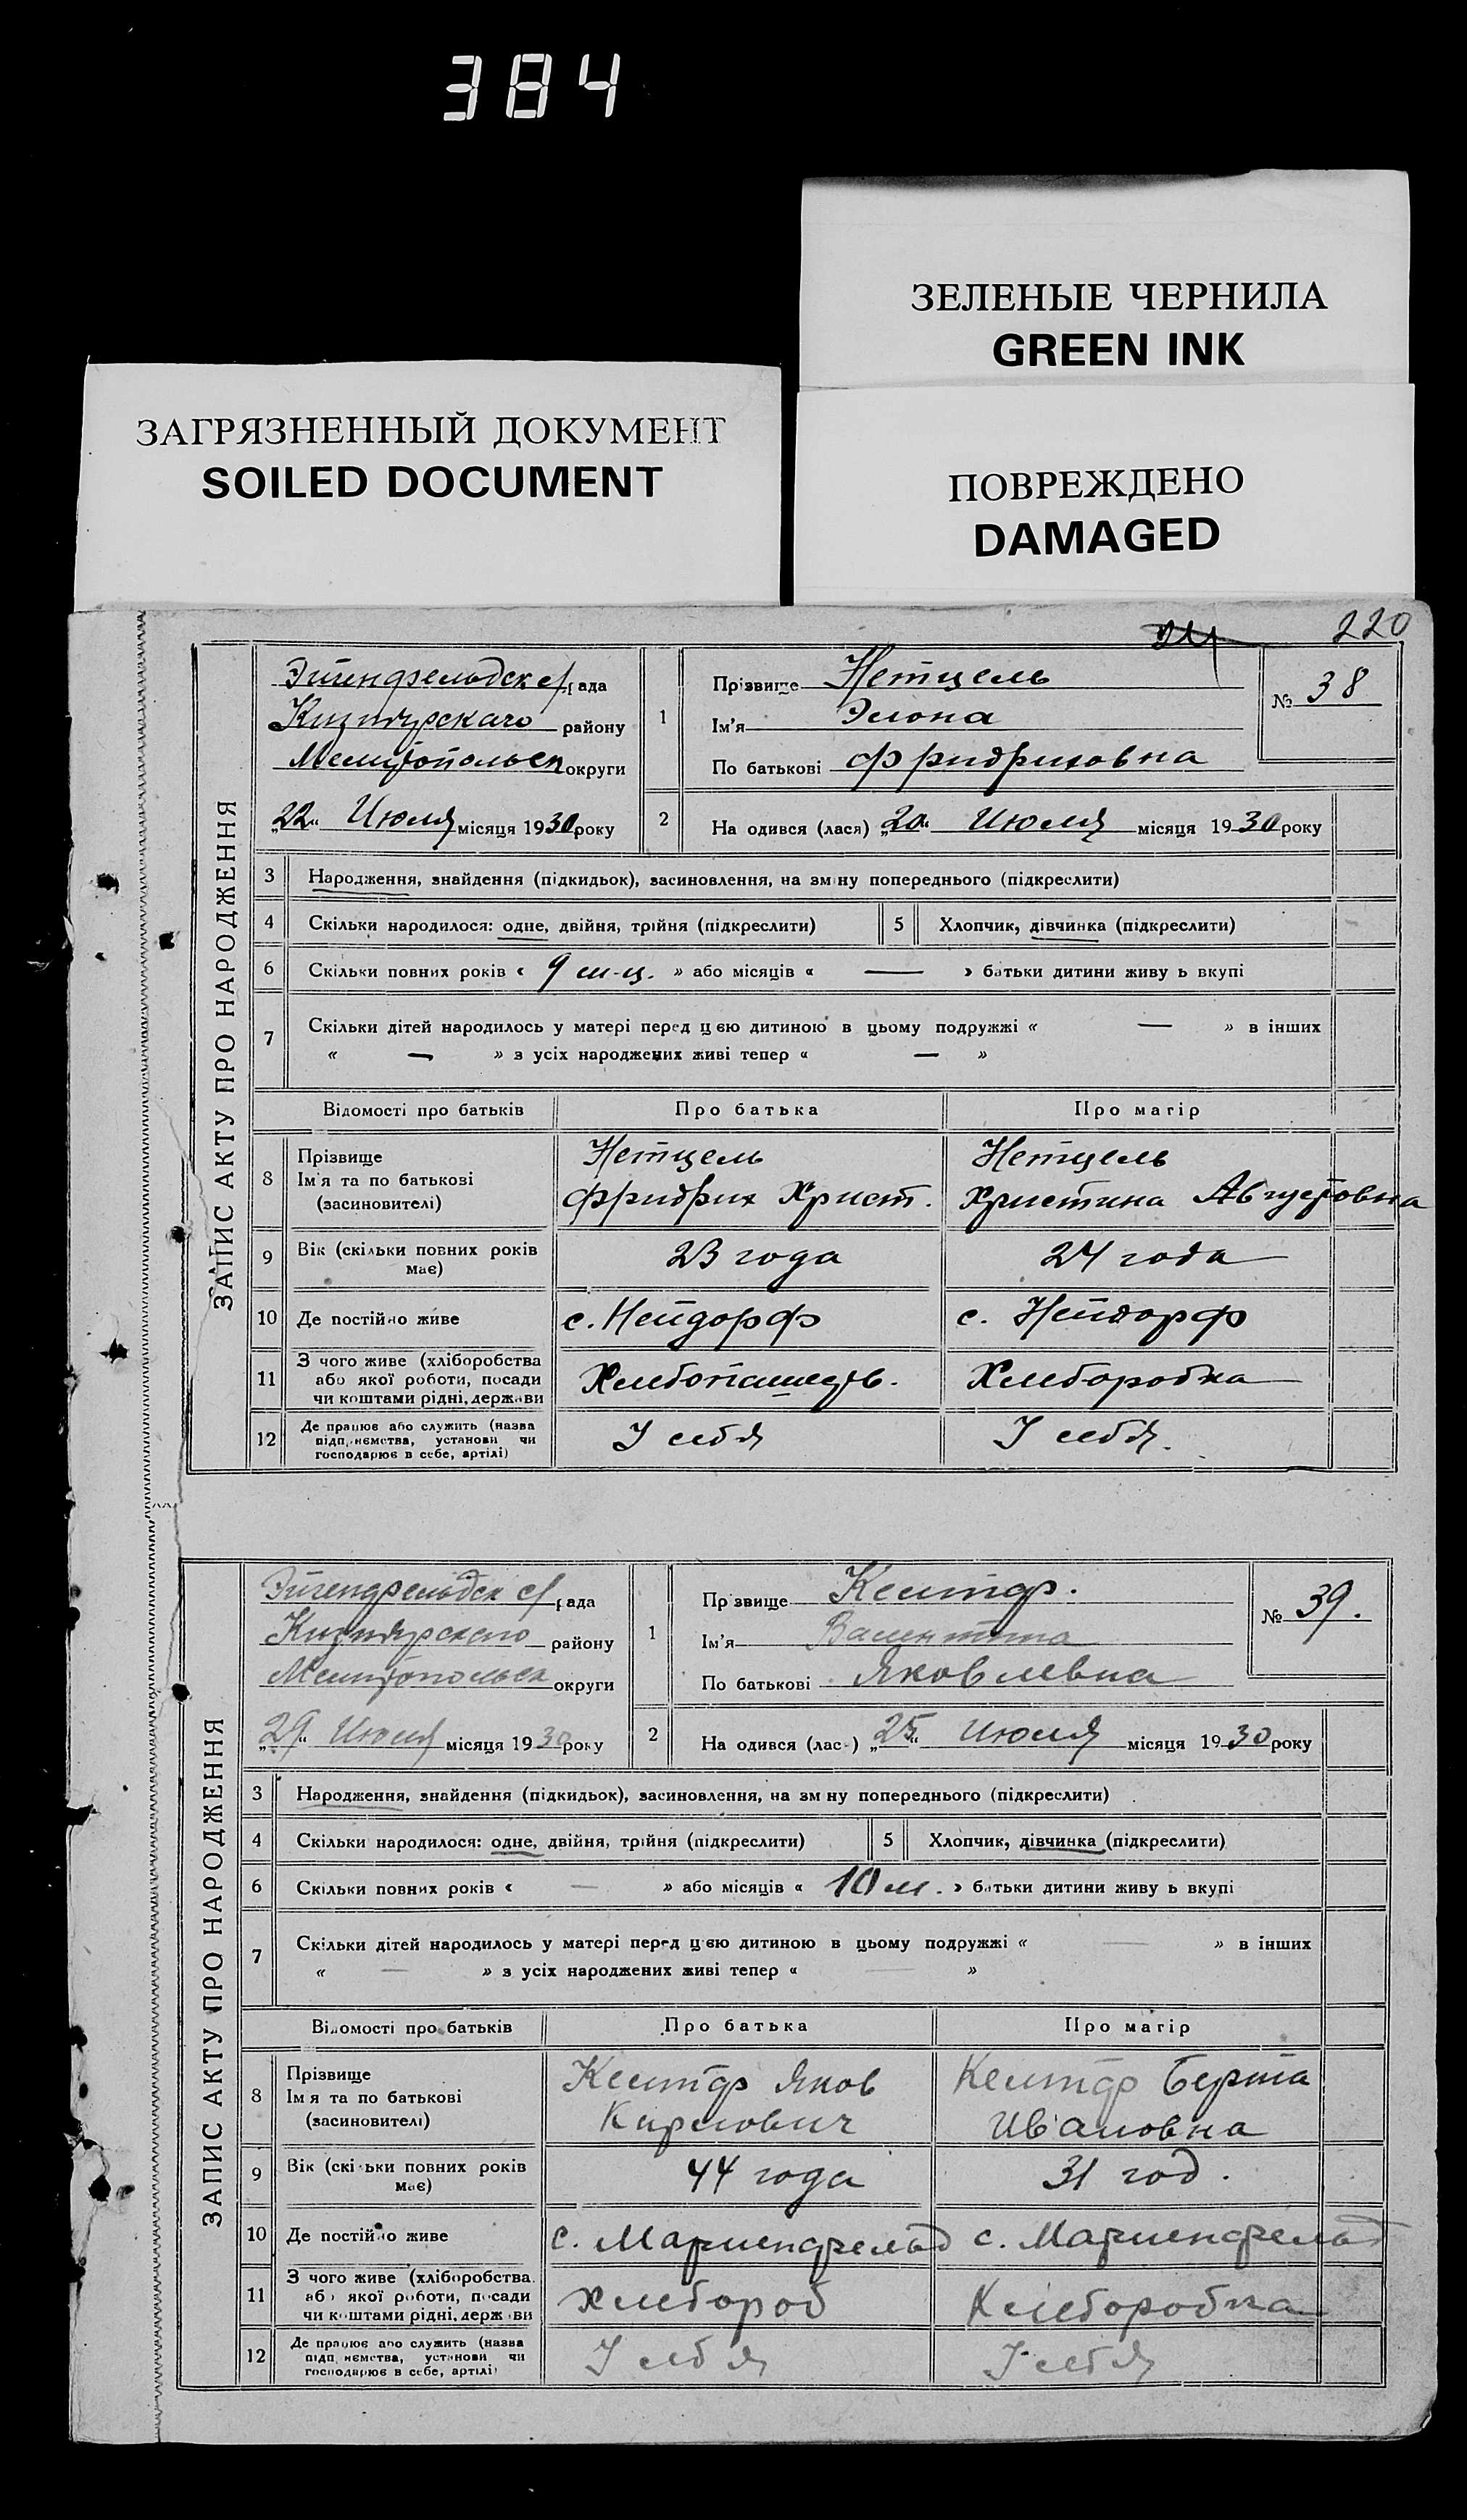 384
ЗЕЛЕНЫЕ ЧЕРНИЛА
GREEN INK
ЗАГРЯЗНЕННЫЙ ДОКУМЕНТ
SOILED DOCUMENT
ПОВРЕЖДЕНО
DAMAGED
220
ЗАПИС АКТУ ПРО НАРОДЖЕННЯ
Эйгенфельдск с/рада
району
Мелитопольск округи
„22“ Июля місяця 1930 року
1
Прізвище Нетцель
Ім'я Элона
По батькові Фридриховна
№ 38
2 На одився (лася) „20“ Июля місяця 1930 року
3 Народження, знайдення (підкидьок), засиновлення, на зміну попереднього (підкреслити)
4 Скільки народилося: одне, двійня, трійня (підкреслити) 5 Хлопчик, дівчинка (підкреслити)
6 Скільки повних років « 9 м-ц. » або місяців « — » батьки дитини живу ь вкупі
7 Скільки дітей народилось у матері перед цею дитиною в цьому подружжі « — » в інших
« — » з усіх народжених живі тепер « — »
Відомості про батьків Про батька Про матір
8 Прізвище Нетцель Нетцель
Ім'я та по батькові Фридрих Христ. Христина Августовна
(засиновителі)
9 Вік (скільки повних років має) 23 года 24 года
10 Де постійно живе с. Нейдорф с. Нейдорф
11 З чого живе (хліборобства або якої роботи, посади чи коштами рідні, держави Хлебопашеств. Хлеборобка
12 Де працює або служить (назва підприємства, установи чи господарює в себе, артілі) У себя У себя.
ЗАПИС АКТУ ПРО НАРОДЖЕННЯ
Эйгенфельдск с/рада
району
Мелитопольск округи
„29“ Июля місяця 1930 року
1
Пр звище
Ім'я Валентина
По батькові Яковлевна
№ 39.
2 На одився (лас-) „25“ Июля місяця 1930 року
3 Народження, знайдення (підкидьок), засиновлення, на зм ну попереднього (підкреслити)
4 Скільки народилося: одне, двійня, трійня (підкреслити) 5 Хлопчик, дівчинка (підкреслити)
6 Скільки повних років « — » або місяців « 10 м. » батьки дитини живу ь вкупі
7 Скільки дітей народилось у матері перед цею дитиною в цьому подружжі « — » в інших
« — » з усіх народжених живі тепер « — »
Відомості про батьків Про батька Про матір
8 Прізвище Яков Берта
Ім я та по батькові Карлович Ивановна
(засиновителі)
9 Вік (скільки повних років має) 44 года 31 год.
10 Де постійно живе с. Мариенфельд с. Мариенфельд
11 З чого живе (хліборобства або якої роботи, посади чи коштами рідні, держави Хлебороб Хлеборобка
12 Де працює або служить (назва підприємства, установи чи господарює в себе, артілі) У себя У себя